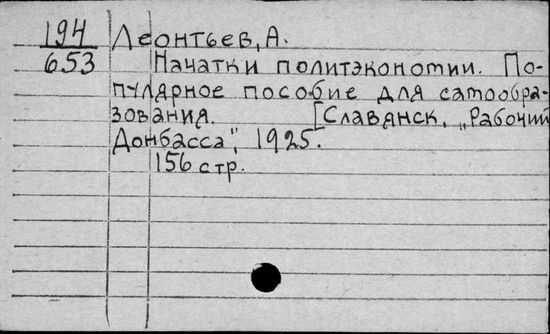 194 Леонтьев, А.
653 Начатки политэкономии. По-
пулярное пособие для самообра-
зования. [Славянск, „Рабочий
Донбасса", 1925.
156 стр.